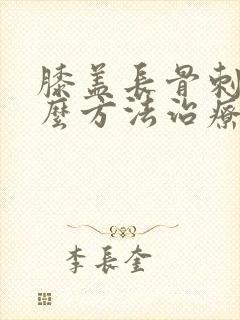 膝盖長骨刺
麼方法治療
李長奎